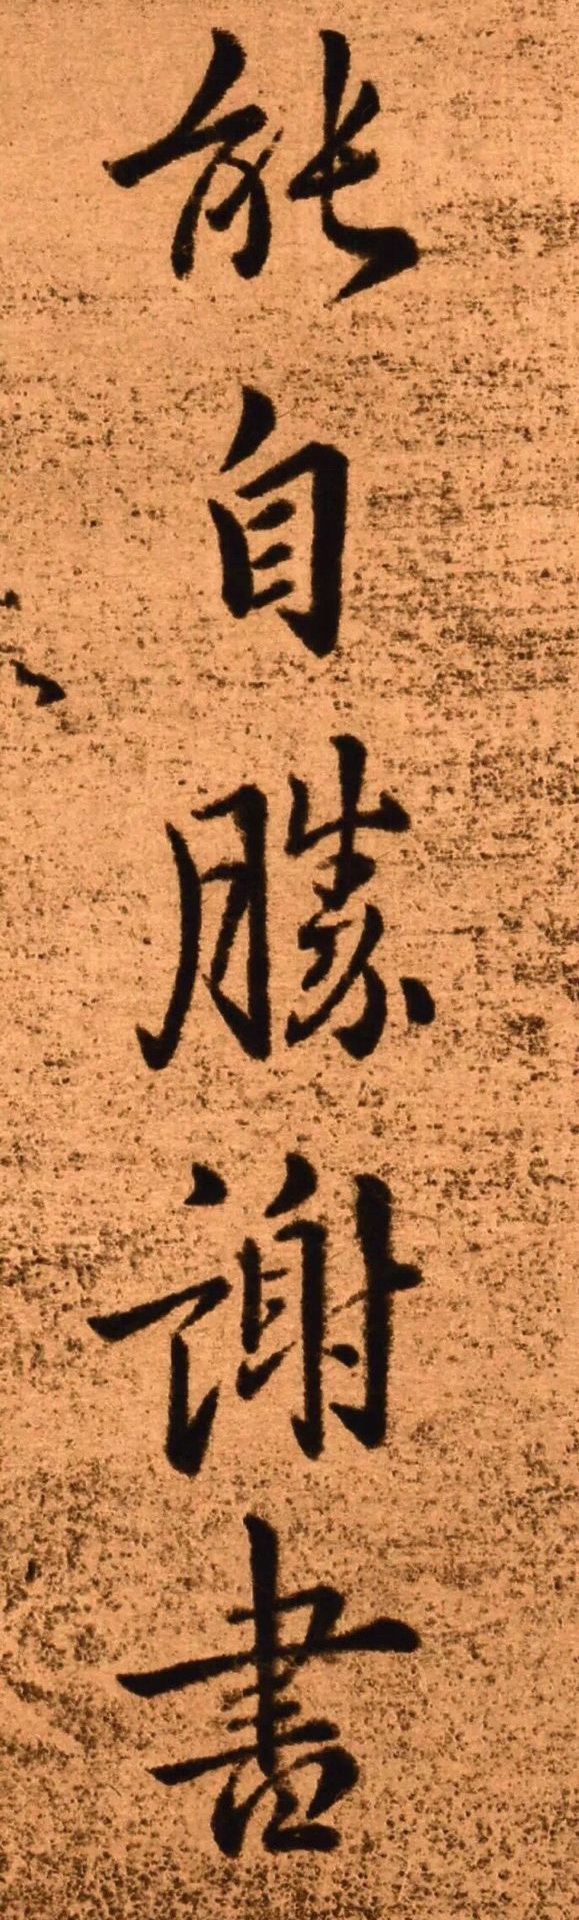 能自勝謝書